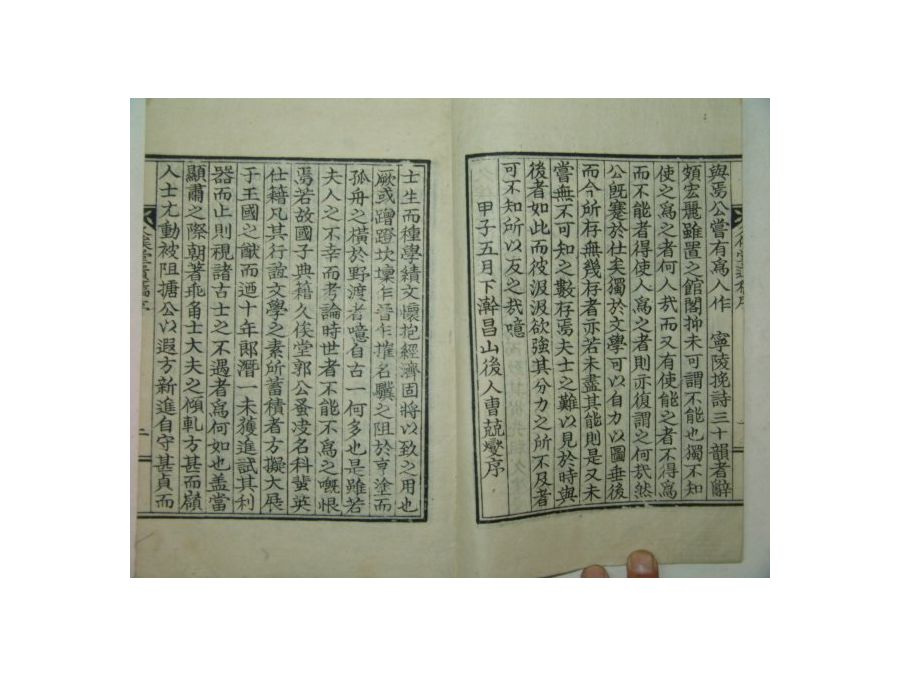 與焉公嘗有爲人作　寧陵挽詩三十韻者辭
頗宏麗雖置之館閣抑未可謂不能也獨不知
使之爲之者何人㢤而又有使能之者不得爲
而不能者得使人爲之者則亦復謂之何㢤然
公旣蹇於仕矣獨於文學可以自力以圖垂後
而今所存無幾存者亦若未盡其能則是又未
嘗無不可知之數存焉夫士之難以見於時與
後者如此而彼汲汲欲強其分力之所不及者
可不知所以反之㢤噫
甲子五月下澣昌山後人曺兢燮序
士生而種學績文懷抱經濟固將以致之用也
厥或蹭蹬坎壈乍晉乍摧名驥之阻於亨塗而
孤舟之橫於野渡者噫自古一何多也是雖若
夫人之不幸而考論時世者不能不爲之嘅恨
焉若故國子典籍久俟堂郭公蚤決名科蜚英
仕籍凡其行誼文學之素所蓄積者方擬大展
于王國之猷而迺十年郞潛一未獲進試其利
器而止則視諸古士之不遇者爲何如也盖當
顯肅之際朝著乖甬士大夫之傾軋方甚而嶺
人士尤動被阻搪公以遐方新進自守甚貞而